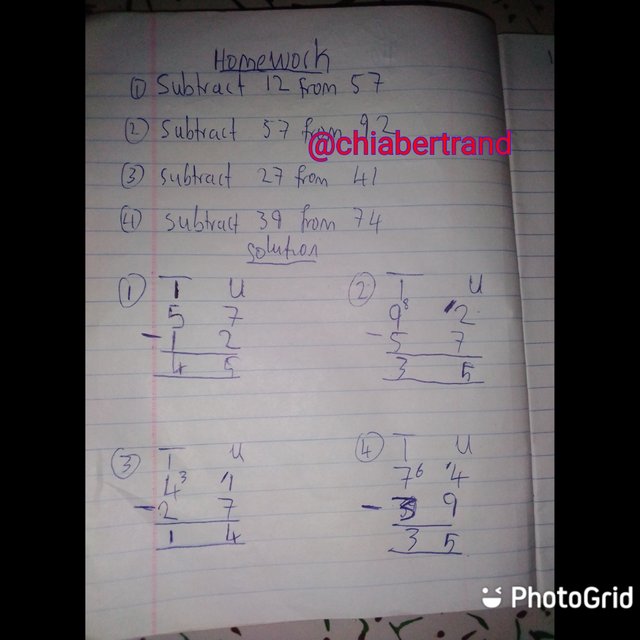 Homework
① Subtract 12 from 57
② Subtract 57 from 92
@chiabertrand
③ Subtract 27 from 41
④ Subtract 39 from 74
Solution
① T U ② T U
5 7 9⁸ ¹2
- 1 2 - 5 7
4 5 3 5
③ T U ④ T U
4³ ¹1 7⁶ ¹4
- 2 7 - 3 9
1 4 3 5
PhotoGrid